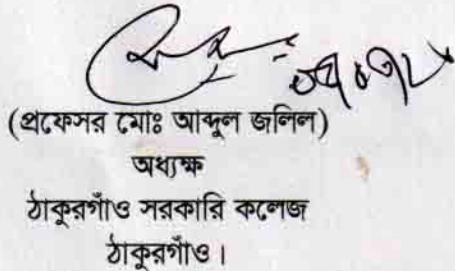 (প্রফেসর মোঃ আব্দুল জলিল)
অধ্যক্ষ
ঠাকুরগাঁও সরকারি কলেজ
ঠাকুরগাঁও।